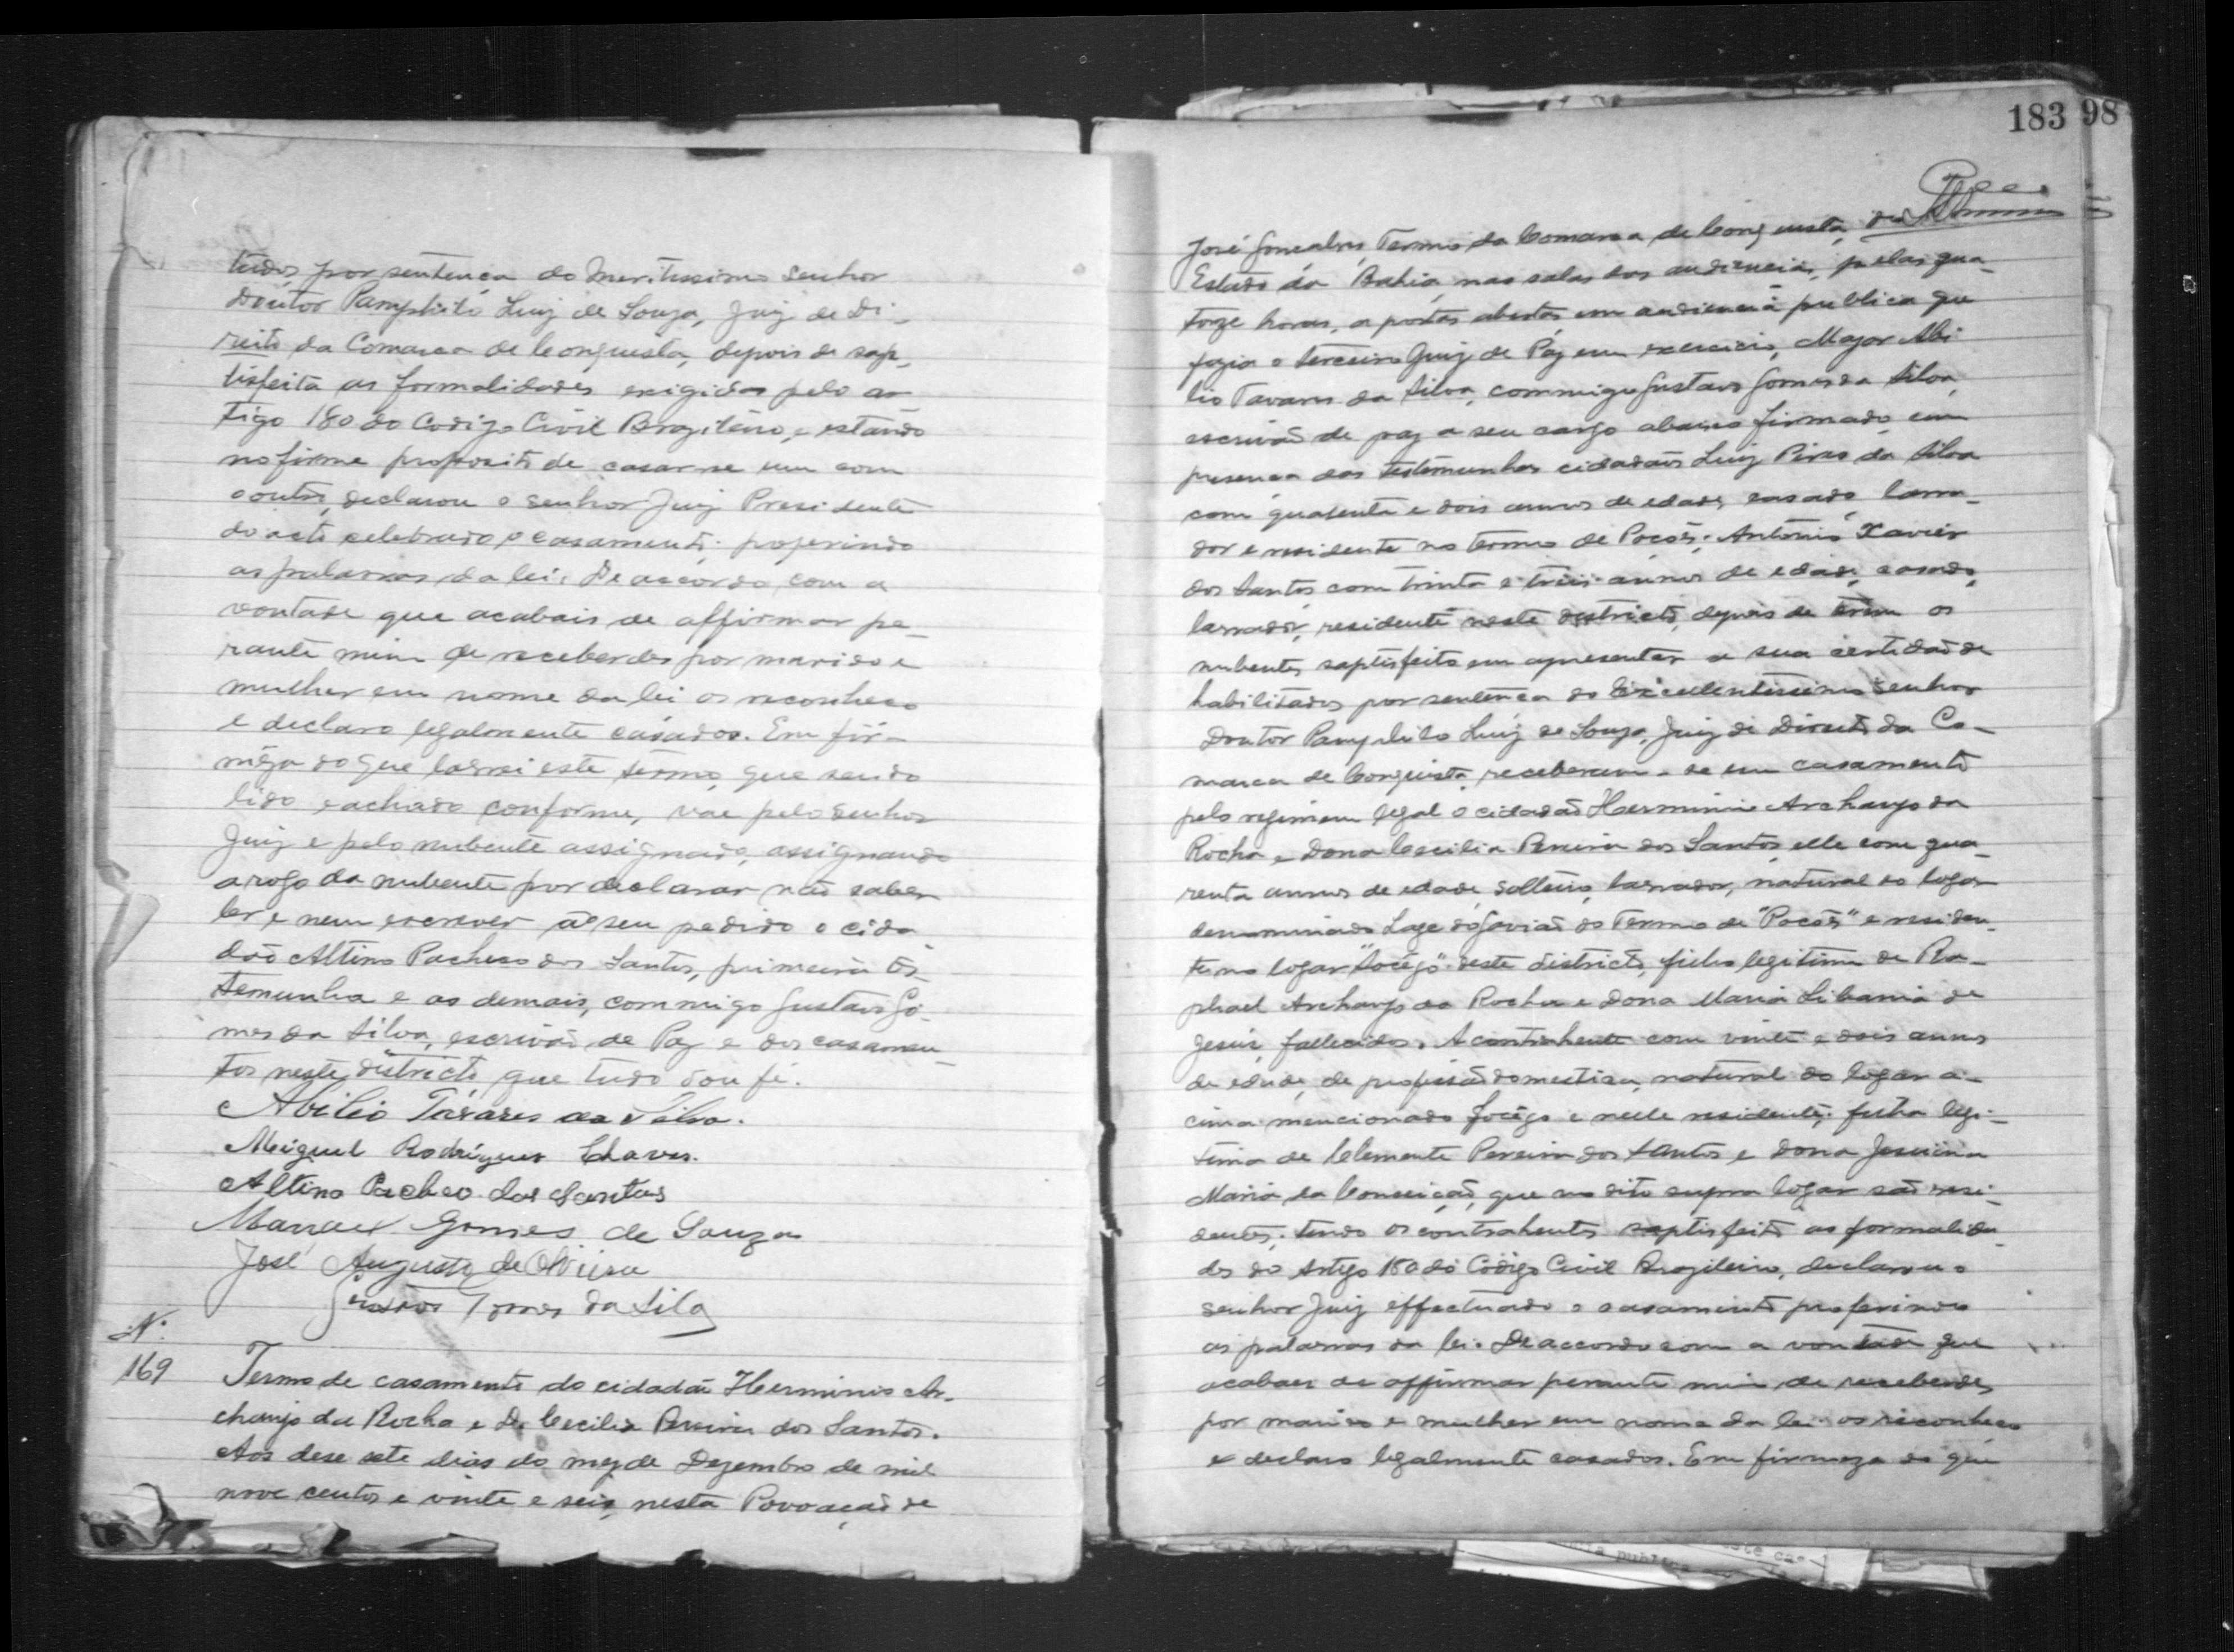 tudos por sentença do Meritissimo Senhor
Doutor Pamphilo Luiz de Souza, Juiz de Di-
reito da Comarca de Conquista, depois de sap-
tisfeita as formalidades exigidas pelo ar
tigo 180 do Codigo Civil Brazileiro, e estando
no firme proposito de casar-se um com
o outro, declarou o senhor Juiz Presidente
do acto celebrado o casamento, proferindo
as palavras da lei: De accordo com a
vontade que acabais de affirmar pe-
rante mim de receberdes por marido e
mulher em nome da lei os reconheço
e declaro legalmente casados. Em fir-
meza do que lavrei este termo, que sendo
lido e achado conforme, vae pelo Senhor
Juiz e pelo nubente assignado, assignando
a rogo da nubente por declarar não saber
ler e nem escrever a seu pedido o cida
dão Altino Pacheco dos Santos, primeira tes-
temunha e as demais, commigo Gustavo Go-
mes da Silva, escrivão de Paz e dos casamen-
tos neste districto que tudo dou fé.
Abilio Tavares da Silva.
Miguel Rodrigues Chaves.
Altino Pacheco dos Santos
Manoel Gomes de Souza
José Augusto de Oliviera
Gustavo Gomes da Silva
N.
169
Termo de casamento do cidadão Herminio Ar-
chanjo da Rocha e D. Cecilia Pereira dos Santos.
Aos dese sete dias do mez de Dezembro de mil
nove centos e vinte e seis, nesta Povoação de
183 98
José Gonçalves, Termo da Comarca de Conquista, do
Estado da Bahia, nas salas das audiencias, pelas qua-
torze horas, a portas abertas em audiencia publica que
fazia o terceiro Juiz de Paz em exercicio, Major Abi
lio Tavares da Silva, commigo Gustavo Gomes da Silva,
escrivão de paz a seu cargo abaixo firmado, em
presença das testemunhas cidadãos Luiz Pires da Silva
com quarenta e dois annos de edade, casado, lavra-
dor e residente no termo de Poções; Antonio Xavier
dos Santos com trinta e treis annos de edade, casado,
lavrador, residente neste districto, depois de terem os
nubentes saptisfeito em apresentar a sua certidão de
habilitados por sentença do Excellentissimo Senhor
Doutor Pamphilo Luiz de Souza, Juiz de Direito da Co-
marca de Conquista, receberam-se em casamento
pelo regimem legal o cidadão Herminio Archanjo da
Rocha e Dona Cecilia Pereira dos Santos, elle com qua-
renta annos de edade, solteiro, lavrador, natural do logar
denominado Lage do Gavião do Termo de "Poções" e residen-
te no logar "Socêgo" deste districto, filho legitimo de Ra-
phael Archanjo da Rocha e Dona Maria Libania de
Jesus, fallecidos. A contrahente com vinte e dois annos
de edade, de profissão domestica, natural do logar a-
cima mencionado Socêgo e nelle residente; filha legi-
tima de Clemente Pereira dos Santos e Dona Jesuina
Maria da Conceição, que no dito supra logar são resi-
dentes; tendo os contrahentes saptisfeito as formalida
des do Artigo 180 do Código Civil Brazileiro, declarou o
senhor Juiz effectuado o casamento proferindo
as palavras da lei: De accordo com a vontade que
acabaes de affirmar perante mim de receberdes
por marido e mulher em nome da lei os reconheço
e declaro legalmente casados. Em firmeza do que